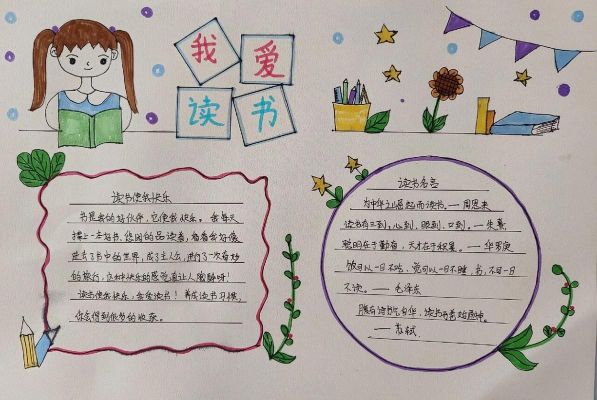 我爱
读书
读书使我快乐
书是我的好伙伴,它使我快乐。我每天
捧上一本好书,悠闲的品读着,看着我好像
进了书中的世界,成了主人公,进行了一次奇妙
的旅行,这种快乐的感觉真让人陶醉呀!
读书使我快乐,我爱读书!养成读书习惯,
你会得到很多的收获。
读书名言
为中华之崛起而读书。——周恩来
读书有三到,心到、眼到、口到。——朱熹
聪明在于勤奋,天才在于积累。——华罗庚
饭可以一日不吃,觉可以一日不睡,书,不可一日
不读。——毛泽东
腹有诗书气自华,读书万卷始通神。
——苏轼